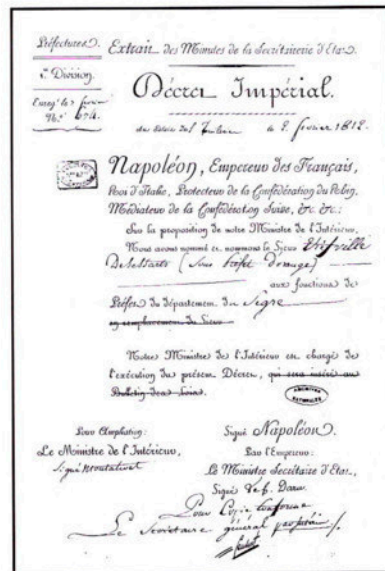 Préfectures.
Extrait des Minutes de la Secrétairerie d'Etat.
1re Division.
Décret Impérial.
Enreg. le février
N.o 674.
au Palais des Tuileries le 2. février 1812.
Napoléon, Empereur des Français,
Roi d'Italie, Protecteur de la Confédération du Rhin,
Médiateur de la Confédération Suisse, &c. &c.:
Sur la proposition de notre Ministre de l'Intérieur,
Nous avons nommé et nommons le Sieur
(Sous Préfet d'orange)
aux fonctions de
Préfet du département du Sègre
en remplacement du Sieur
Notre Ministre de l'Intérieur est chargé de
l'exécution du présent Décret, qui sera inséré au
Bulletin des Lois.
ARCHIVES
NATIONALES
Pour Ampliation:
Le Ministre de l'Intérieur,
Signé Montalivet
Signé Napoléon.
Par l'Empereur:
Le Ministre Secrétaire d'Etat,
Signé Daru.
Pour Copie Conforme
Le Secrétaire général